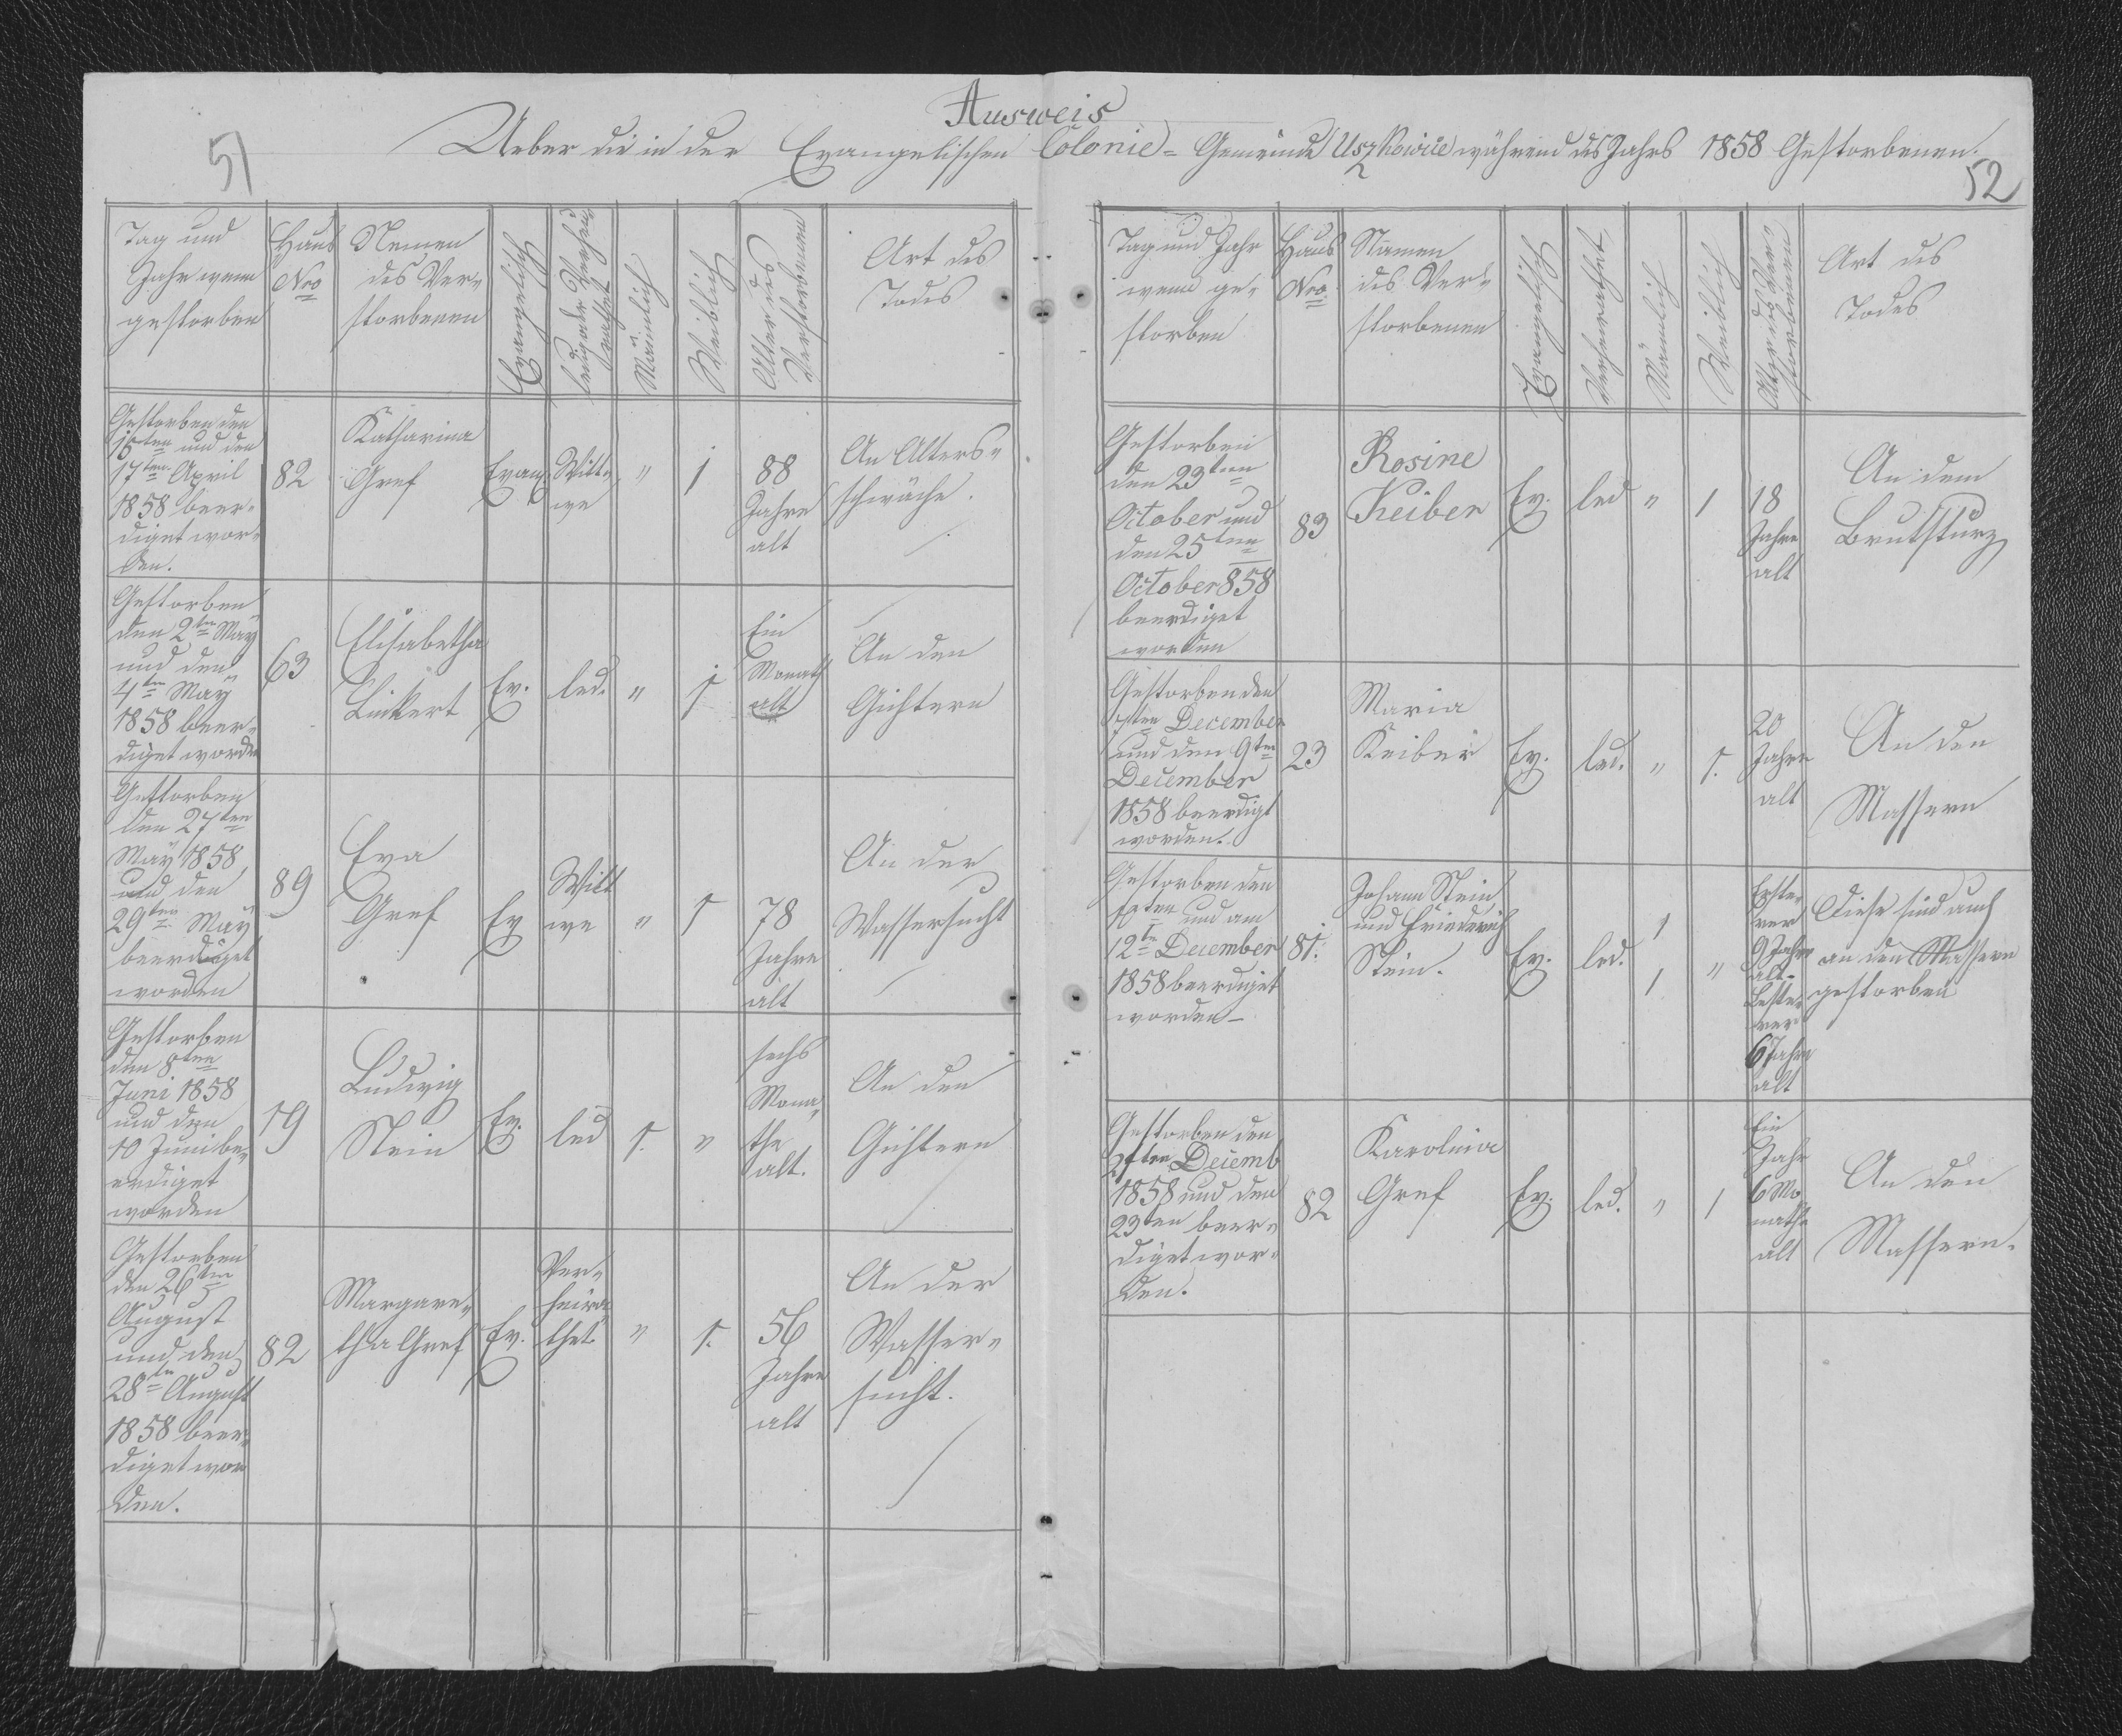 Ausweis
Ueber die in der Evangelischen Colonie-Gemeinde Uszkowice während des Jahrs 1858 Gestorbenen.
51
Tag und
Jahr wenn
gestorben
Haus
Nro
Namen
des Ver-
storbenen
Evangelisch
ledig oder Verhei-
rathet
Mänlich
Weiblich
Alter des
Verstorbenen
Art des
Todes
Gestorben den
15ten und den
17ten April
1858 beer-
diget wor-
den.
82
Katharina
Gref
Evang
Witt-
we
"
1
88
Jahre
alt
An Alters-
schwäche.
Gestorben
den 2ten May
und den
4ten May
1858 beer-
diget worden
63
Elisabetha
Linkert
Ev.
led.
"
1
Ein
Monath
alt
An den
Gichtern
Gestorben
den 27ten
May 1858
und den
29ten May
beerdiget
worden
89
Eva
Gref
Ev
Witt
we
"
1
78
Jahre
alt
An der
Wassersucht
Gestorben
den 8ten
Juni 1858
und den
10 Juni be-
erdiget
worden
19
Ludwig
Stein
Ev.
led
1.
"
sechs
Mona-
the
alt.
An den
Gichtern
Gestorben
den 26ten
August
und den
28ten August
1858 beer-
diget wor
den.
82
Margare-
tha Gref
Ev.
Ver-
heira-
thet
"
1.
56
Jahre
alt
An der
Wasser-
sucht.
52
Tag und Jahr
wenn ge-
storben
Haus
Nro.
Namen
des Ver-
storbenen
Evangelisch
Verheirathet
Mänlich
Weiblich
Alter des Ver-
storbenen
Art des
Todes
Gestorben
den 23ten
October und
den 25ten
October 858
beerdiget
worden
83
Rosine
Keiber
Ev.
led
"
1
18
Jahre
alt
An dem
Brutsturz
Gestorben den
7ten December
und den 9ten
December
1858 beerdigt
worden.
23
Maria
Keiber
Ev.
led.
"
1.
20
Jahre
alt
An den
Massern
Gestorben den
10ten und am
12te December
1858 beerdiget
worden
81.
Johann Stein
und Friederich
Stein.
Ev.
led.
1
1
"
Erste-
rer
9 Jahre
alt-
Leste-
rer
6 Jahre
alt
Diese sind auch
an den Massern
gestorben
Gestorben den
21ten Decemb
1858 und den
23ten beer-
diget wor-
den.
82
Karolina
Gref
Ev.
led.
"
1
Ein
Jahr
6 Mo
nathe
alt
An den
Massern.